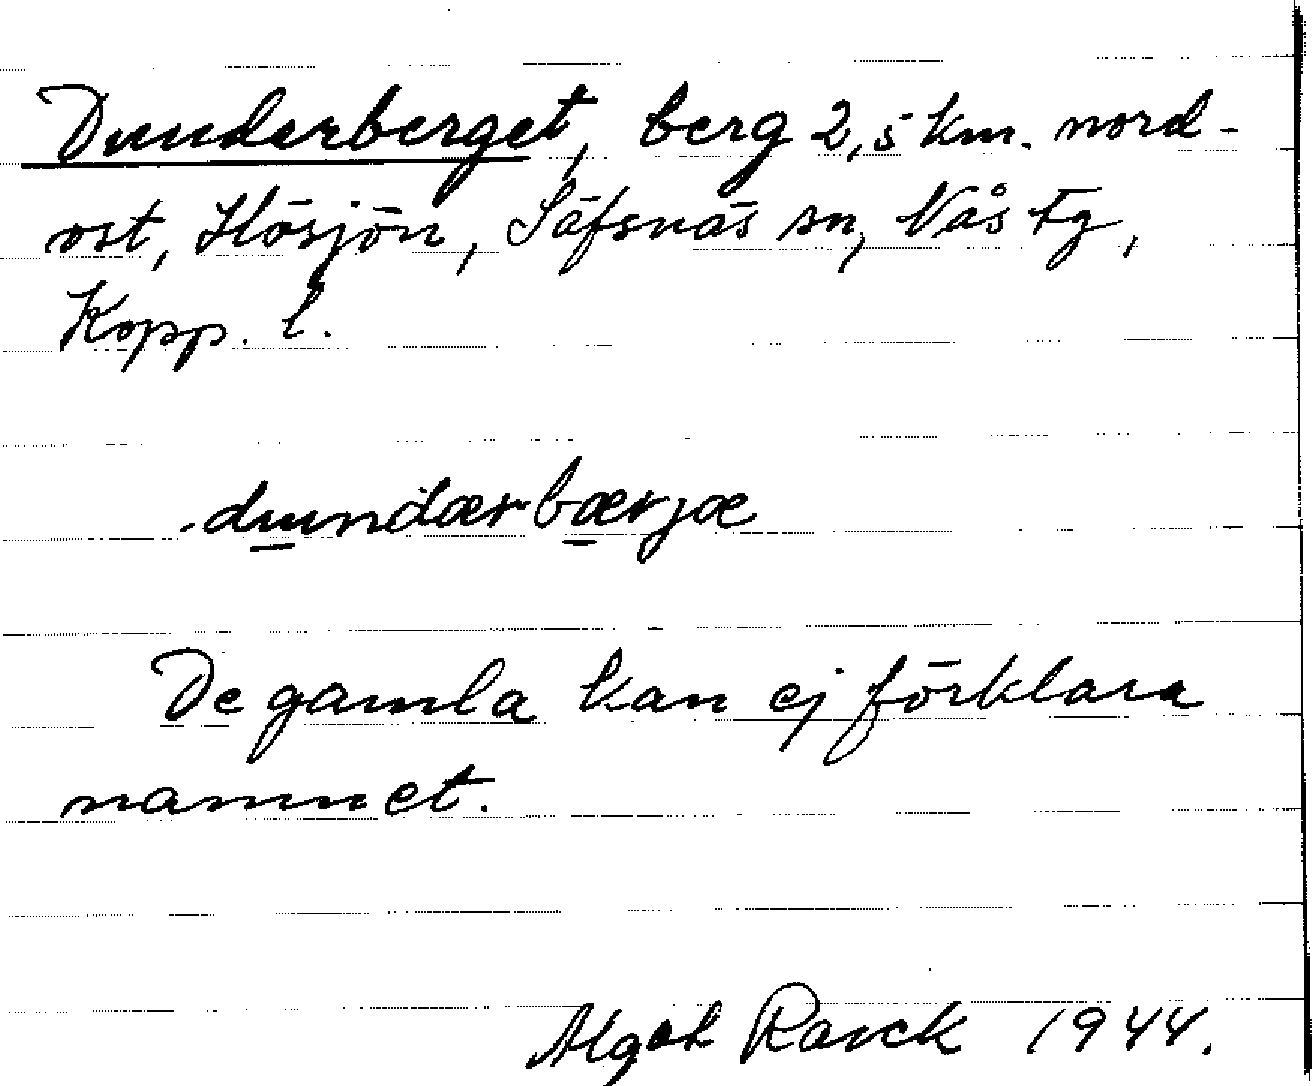 Dunderberget, berg 2,5 km. nord-
ost, Hösjön, Säfsnäs sn, Nås tg,
Kopp. l.
dundærbærjæ
De gamla kan ej förklara
namnet.
Algot Rarck 1944.